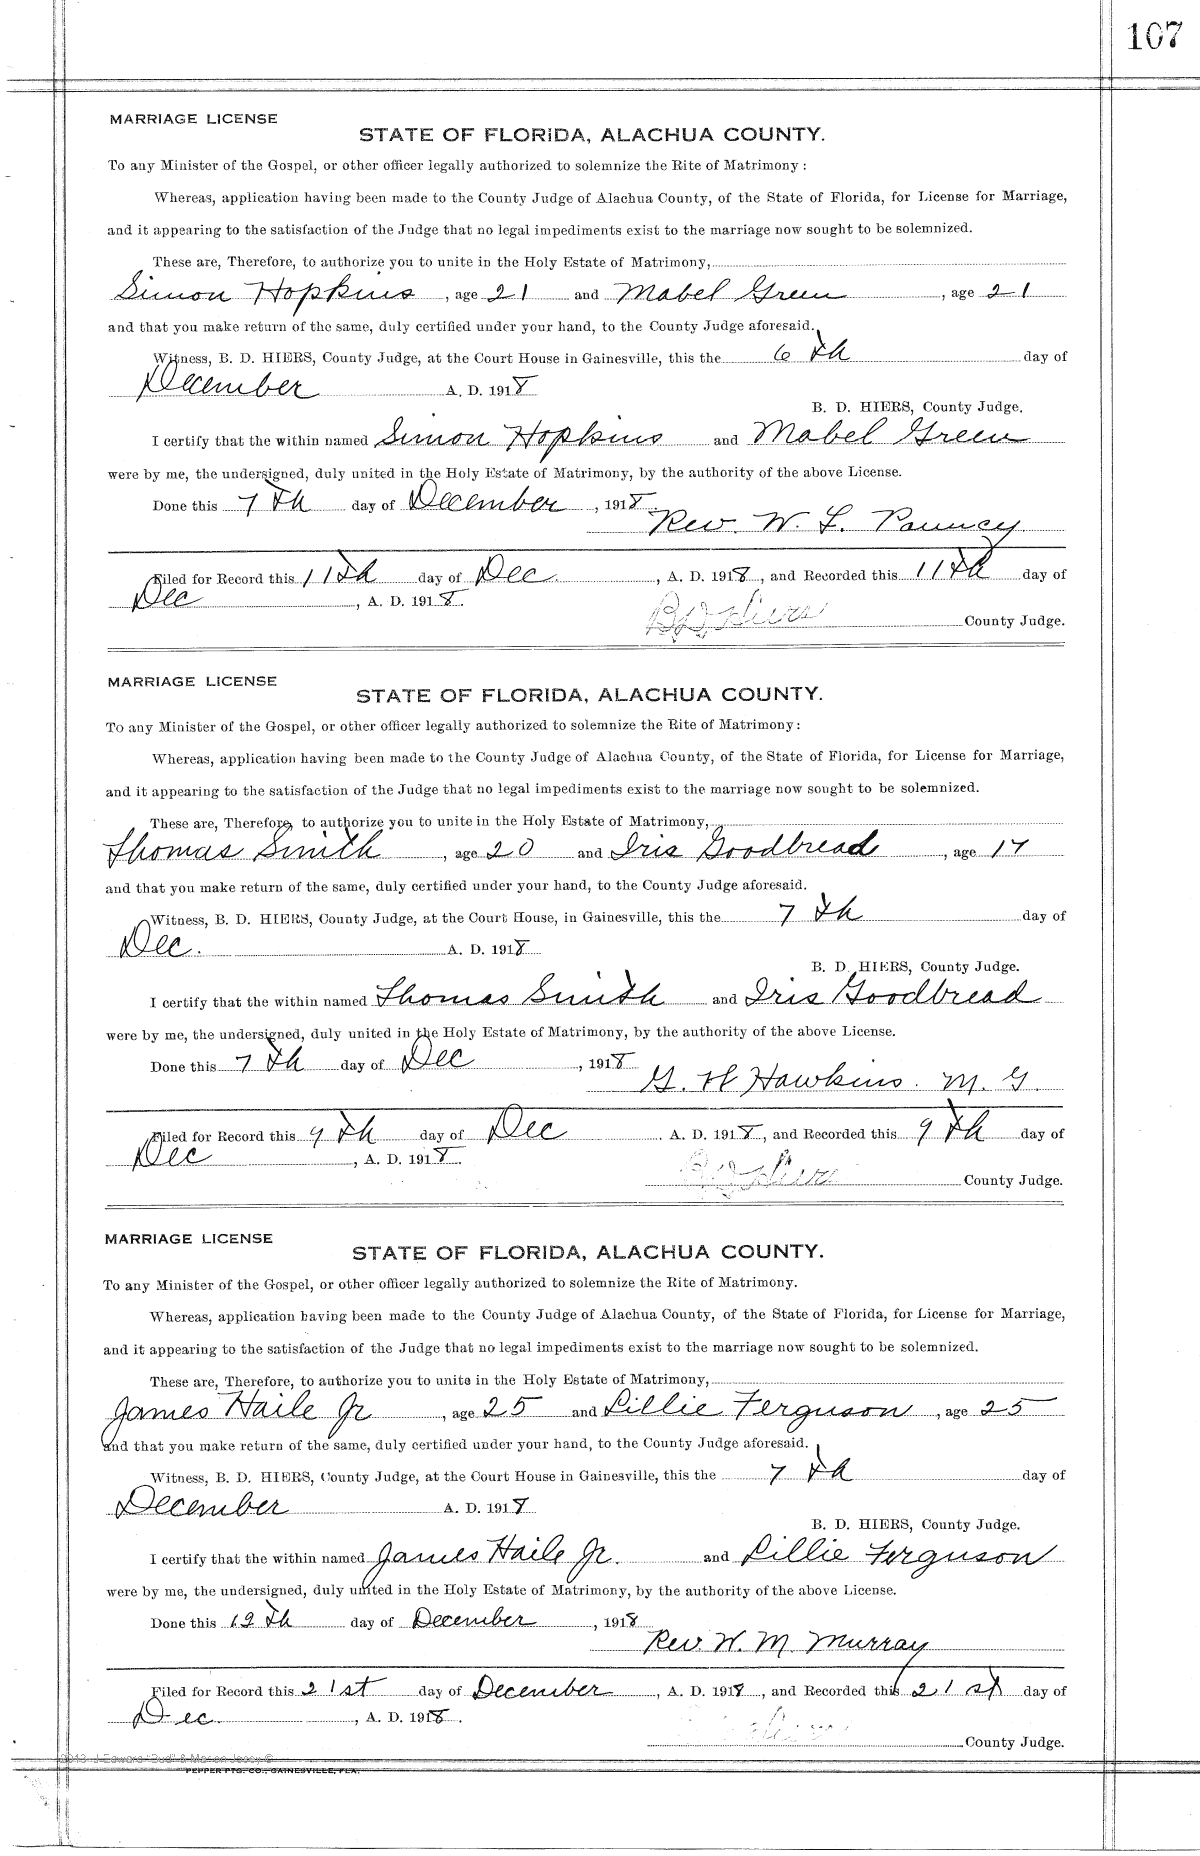 107
MARRIAGE LICENSE
STATE OF FLORIDA, ALACHUA COUNTY.
To any Minister of the Gospel, or other officer legally authorized to solemnize the Rite of Matrimony :
Whereas, application having been made to the County Judge of Alachua County, of the State of Florida, for License for Marriage,
and it appearing to the satisfaction of the Judge that no legal impediments exist to the marriage now sought to be solemnized.
These are, Therefore, to authorize you to unite in the Holy Estate of Matrimony,
Simon Hopkins , age 21 and Mabel Green , age 21
and that you make return of the same, duly certified under your hand, to the County Judge aforesaid.
Witness, B. D. HIERS, County Judge, at the Court House in Gainesville, this the 6th day of
December A. D. 1918
B. D. HIERS, County Judge.
I certify that the within named Simon Hopkins and Mabel Green
were by me, the undersigned, duly united in the Holy Estate of Matrimony, by the authority of the above License.
Done this 7th day of December , 1918.
Rev. W. L. Pouncy
Filed for Record this 11th day of Dec. , A. D. 1918, and Recorded this 11th day of
Dec , A. D. 1918.
B D Hiers County Judge.
MARRIAGE LICENSE
STATE OF FLORIDA, ALACHUA COUNTY.
To any Minister of the Gospel, or other officer legally authorized to solemnize the Rite of Matrimony:
Whereas, application having been made to the County Judge of Alachua County, of the State of Florida, for License for Marriage,
and it appearing to the satisfaction of the Judge that no legal impediments exist to the marriage now sought to be solemnized.
These are, Therefore, to authorize you to unite in the Holy Estate of Matrimony,
Thomas Smith , age 20 and Iris Goodbread , age 17
and that you make return of the same, duly certified under your hand, to the County Judge aforesaid.
Witness, B. D. HIERS, County Judge, at the Court House, in Gainesville, this the 7th day of
Dec. A. D. 1918
B. D. HIERS, County Judge.
I certify that the within named Thomas Smith and Iris Goodbread
were by me, the undersigned, duly united in the Holy Estate of Matrimony, by the authority of the above License.
Done this 7th day of Dec , 1918
G. H Hawkins. M. G.
Filed for Record this 9th day of Dec . A. D. 1918, and Recorded this 9th day of
Dec , A. D. 1918.
B D Hiers County Judge.
MARRIAGE LICENSE
STATE OF FLORIDA, ALACHUA COUNTY.
To any Minister of the Gospel, or other officer legally authorized to solemnize the Rite of Matrimony.
Whereas, application having been made to the County Judge of Alachua County, of the State of Florida, for License for Marriage,
and it appearing to the satisfaction of the Judge that no legal impediments exist to the marriage now sought to be solemnized.
These are, Therefore, to authorize you to unite in the Holy Estate of Matrimony,
James Haile Jr , age 25 and Lillie Ferguson , age 25
and that you make return of the same, duly certified under your hand, to the County Judge aforesaid.
Witness, B. D. HIERS, County Judge, at the Court House in Gainesville, this the 7th day of
December A. D. 1918
B. D. HIERS, County Judge.
I certify that the within named James Haile Jr. and Lillie Ferguson
were by me, the undersigned, duly united in the Holy Estate of Matrimony, by the authority of the above License.
Done this 19th day of December , 1918
Rev. W. M. Murray
Filed for Record this 21st day of December , A. D. 1918, and Recorded this 21st day of
Dec. , A. D. 1918.
County Judge.
2013 J Edward "Bud" & Marion Jessy ©
PEPPER PTG. CO., GAINESVILLE, FLA.